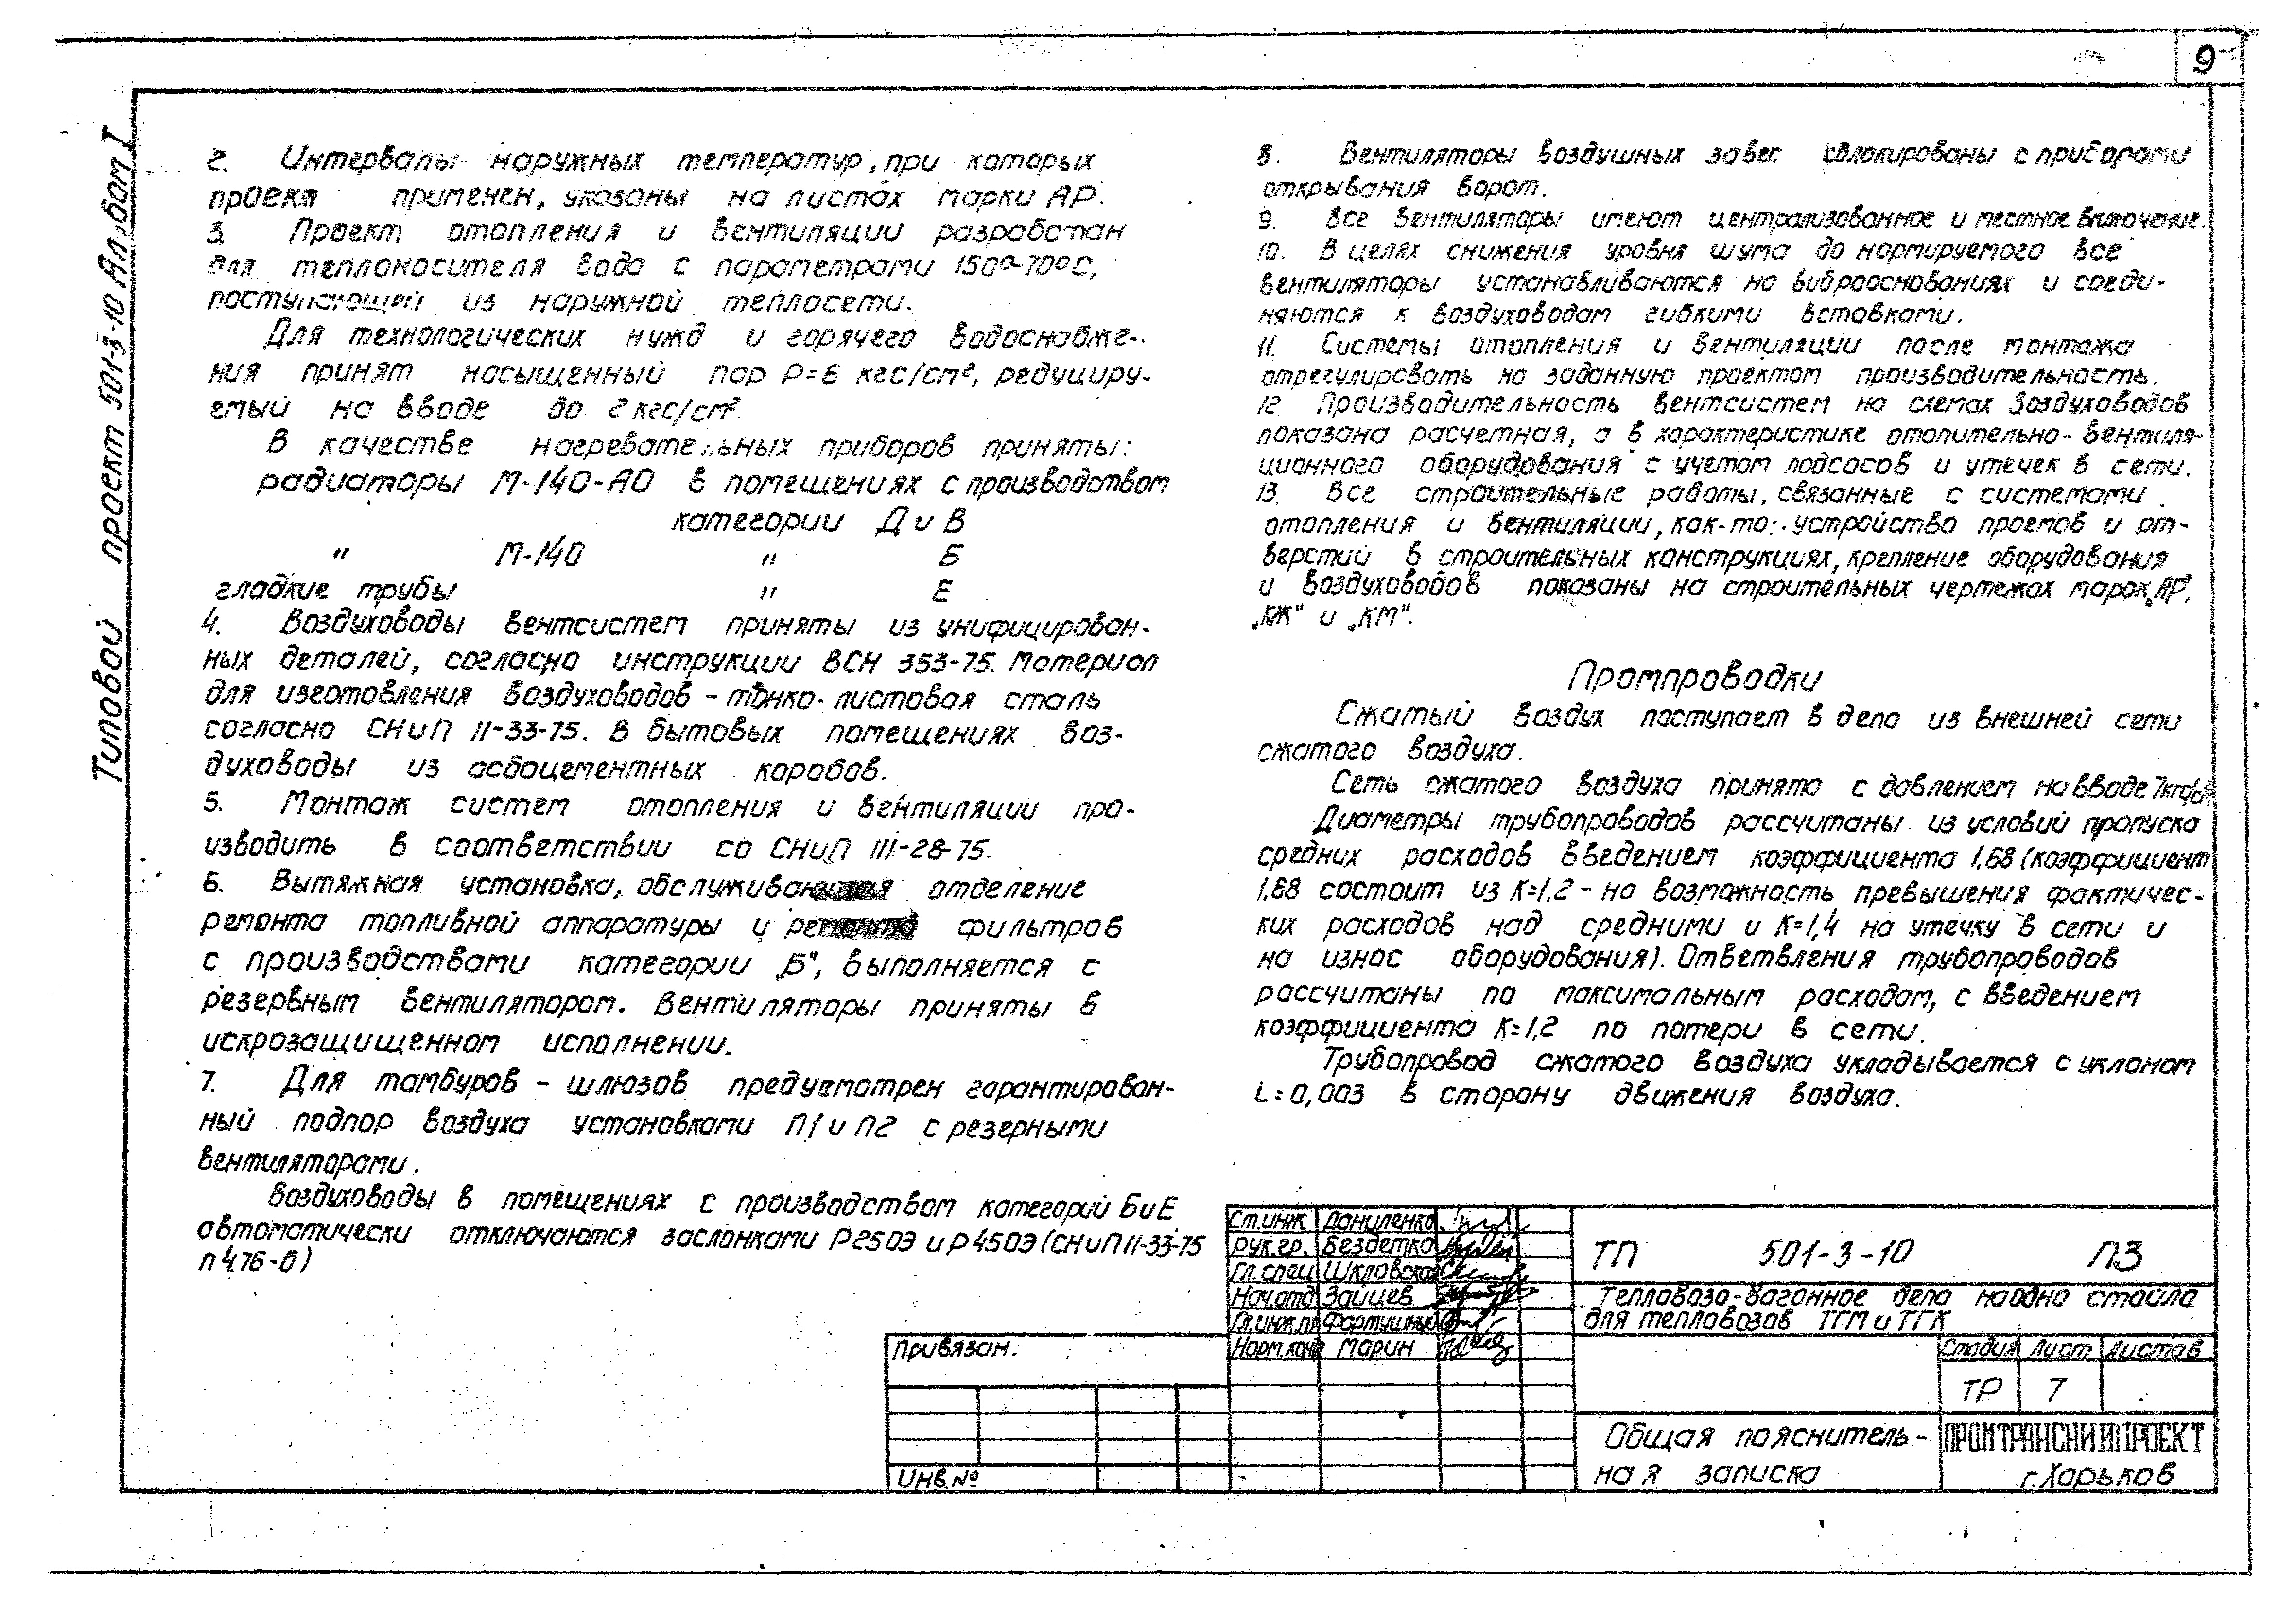 9
Типовой проект 501-3-10 Альбом I
2. Интервалы наружных температур, при которых
проект применен, указаны на листах марки АР.
3. Проект отопления и вентиляции разработан
для теплоносителя вода с параметрами 150°-70°С,
поступающей из наружной теплосети.
Для технологических нужд и горячего водоснабже-
ния принят насыщенный пар Р=6 кгс/см², редуциру-
емый на вводе до 2 кгс/см²
В качестве нагревательных приборов приняты:
радиаторы М-140-АО в помещениях с производством
категории Д и В
" М-140 " Б
гладкие трубы " Е
4. Воздуховоды вентсистем приняты из унифицирован-
ных деталей, согласно инструкции ВСН 353-75. Материал
для изготовления воздуховодов - тонко-листовая сталь
согласно СНиП II-33-75. В бытовых помещениях воз-
духоводы из асбоцементных коробов.
5. Монтаж систем отопления и вентиляции про-
изводить в соответствии со СНиП III-28-75.
6. Вытяжная установка, обслуживающая отделение
ремонта топливной аппаратуры и фильтров
с производствами категории „Б", выполняется с
резервным вентилятором. Вентиляторы приняты в
искрозащищенном исполнении.
7. Для тамбуров - шлюзов предусмотрен гарантирован-
ный подпор воздуха установками П1 и П2 с резерными
вентиляторами.
Воздуховоды в помещениях с производством категорий Б и Е
автоматически отключаются заслонками Р250Э и Р450Э (СНиП II-33-75
п 4.76-б)
8. Вентиляторы воздушных завес сблокированы с приборами
открывания ворот.
9. Все вентиляторы имеют централизованное и местное включение.
10. В целях снижения уровня шума до нормируемого все
вентиляторы устанавливаются на виброоснованиях и соеди-
няются к воздуховодам гибкими вставками.
11. Системы отопления и вентиляции после монтажа
отрегулировать на заданную проектом производительность.
12 Производительность вентсистем на схемах воздуховодов
показана расчетная, а в характеристике отопительно-вентиля-
ционного оборудования с учетом подсосов и утечек в сети.
13. Все строительные работы, связанные с системами
отопления и вентиляции, как-то: устройство проемов и от-
верстий в строительных конструкциях, крепление оборудования
и воздуховодов показаны на строительных чертежах марок „АР",
„КЖ" и „КМ".
Промпроводки
Сжатый воздух поступает в депо из внешней сети
сжатого воздуха.
Сеть сжатого воздуха принята с давлением на вводе 7кгс/см²
Диаметры трубопроводов рассчитаны из условий пропуска
средних расходов введением коэффициента 1,68 (коэффициент
1,68 состоит из К=1,2 - на возможность превышения фактичес-
ких расходов над средними и К=1,4 на утечку в сети и
на износ оборудования). Ответвления трубопроводов
рассчитаны по максимальным расходам, с введением
коэффициента К=1,2 по потери в сети.
Трубопровод сжатого воздуха укладывается с уклоном
i=0,003 в сторону движения воздуха.
Ст.инж Даниленко
Рук.гр. Бездетко
Гл.спец Шкловская
Нач.отд Зайцев
Гл.инж.пр Фортушный
Норм.конт Марин
Привязан.
Инв.№
ТП 501-3-10 ПЗ
Тепловозо-вагонное депо на одно стойло
для тепловозов ТГМ и ТГК
Стадия Лист Листов
ТР 7
Общая пояснитель-
ная записка
ПРОМТРАНСНИИПРОЕКТ
г.Харьков